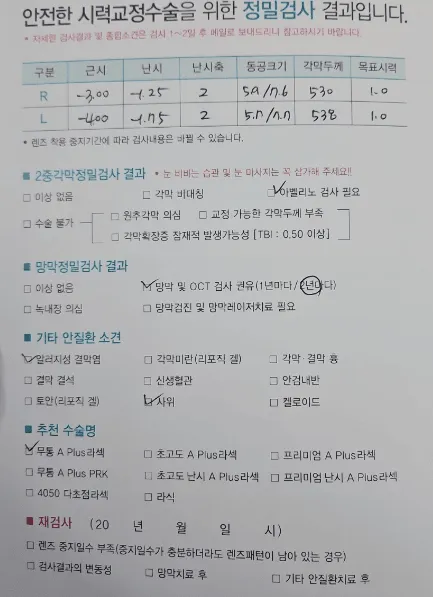 안전한 시력교정수술을 위한 정밀검사 결과입니다.
* 자세한 검사결과 및 종합소견은 검사 1~2일 후 메일로 보내드리니 참고하시기 바랍니다.
구분 근시 난시 난시축 동공크기 각막두께 목표시력
R -3.00 -1.25 2 5.9/7.6 530 1.0
L -4.00 -1.75 2 5.7/7.7 538 1.0
* 렌즈 착용 중지기간에 따라 검사내용은 바뀔 수 있습니다.
■ 2중각막정밀검사 결과 * 눈 비비는 습관 및 눈 마사지는 꼭 삼가해 주세요!!
□ 이상 없음 □ 각막 비대칭 ☑ 아벨리노 검사 필요
□ 수술 불가 □ 원추각막 의심 □ 교정 가능한 각막두께 부족
□ 각막확장증 잠재적 발생가능성 [TBI : 0.50 이상]
■ 망막정밀검사 결과
□ 이상 없음 ☑ 망막 및 OCT 검사 권유(1년마다/2년마다)
□ 녹내장 의심 □ 망막검진 및 망막레이저치료 필요
■ 기타 안질환 소견
☑ 알러지성 결막염 □ 각막미란(리포직 겔) □ 각막·결막 흉
□ 결막 결석 □ 신생혈관 □ 안검내반
□ 토안(리포직 겔) ☑ 사위 □ 켈로이드
■ 추천 수술명
☑ 무통 A Plus라섹 □ 초고도 A Plus라섹 □ 프리미엄 A Plus라섹
□ 무통 A Plus PRK □ 초고도 난시 A Plus라섹 □ 프리미엄 난시 A Plus라섹
□ 4050 다초점라섹 □ 라식
■ 재검사 (20 년 월 일 시)
□ 렌즈 중지일수 부족(중지일수가 충분하더라도 렌즈패턴이 남아 있는 경우)
□ 검사결과의 변동성 □ 망막치료 후 □ 기타 안질환치료 후